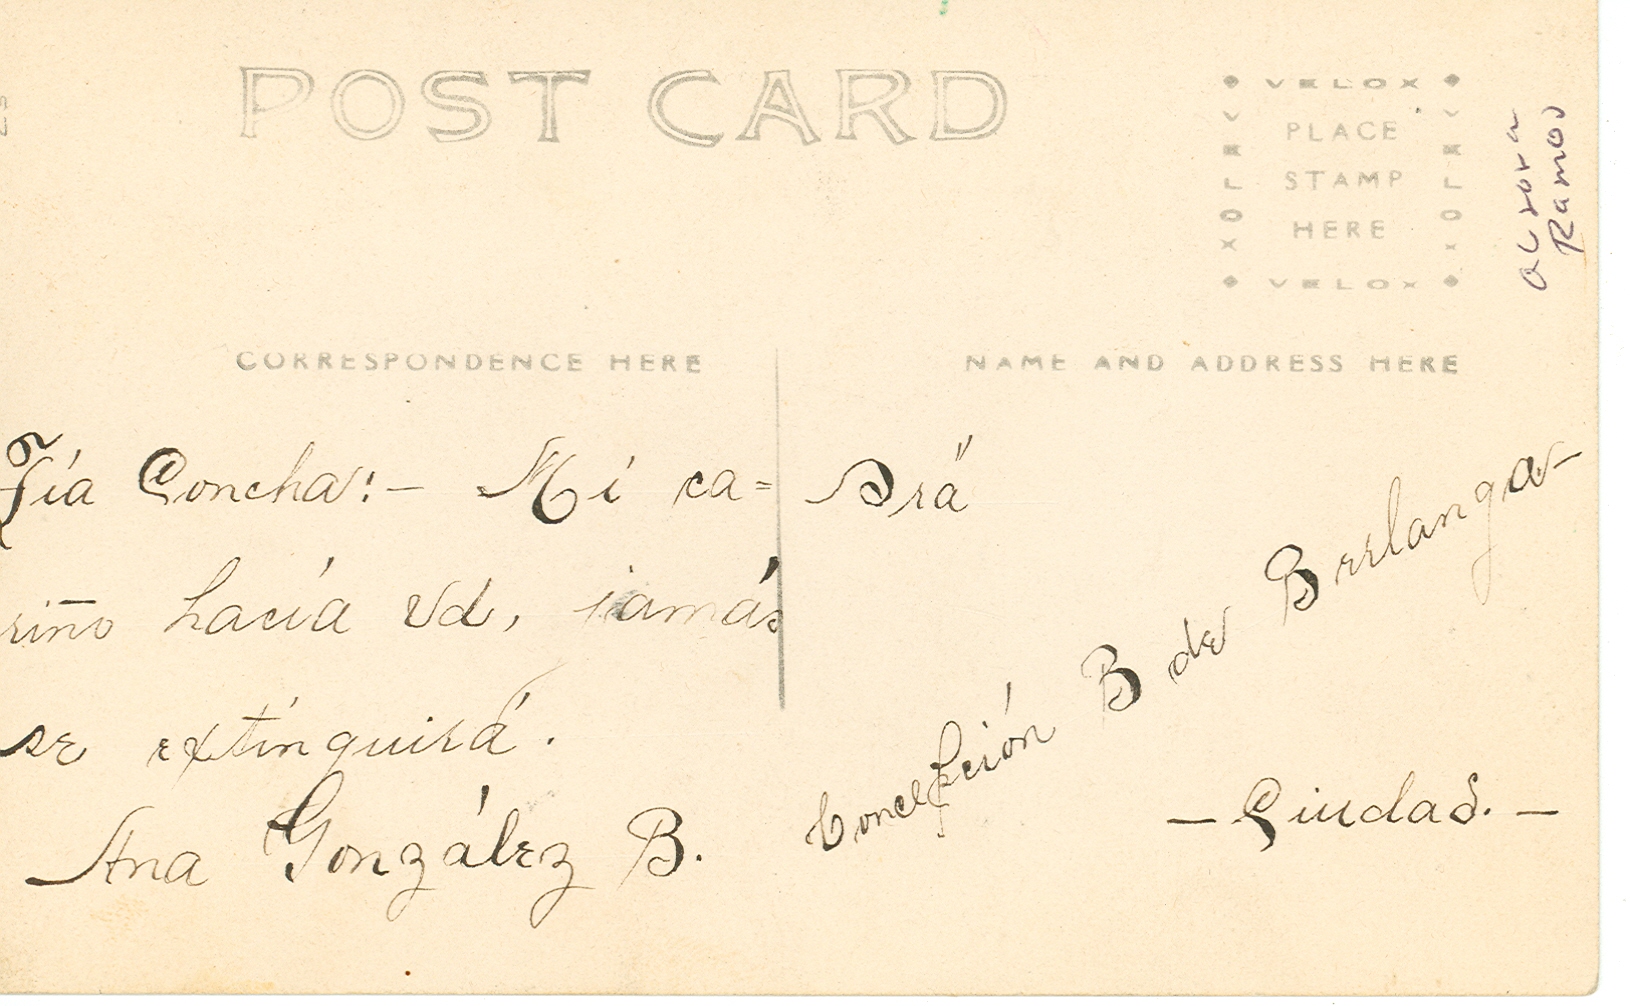 POST CARD
VELOX
PLACE
STAMP
HERE
VELOX
VELOX
VELOX
Ramos
CORRESPONDENCE HERE
NAME AND ADDRESS HERE
Tía Concha:- Mi ca=
riño hacía Vd, jamás
se extinguirá.
Ana González B.
Srá
Concepción B de Berlanga-
- Ciudad. -